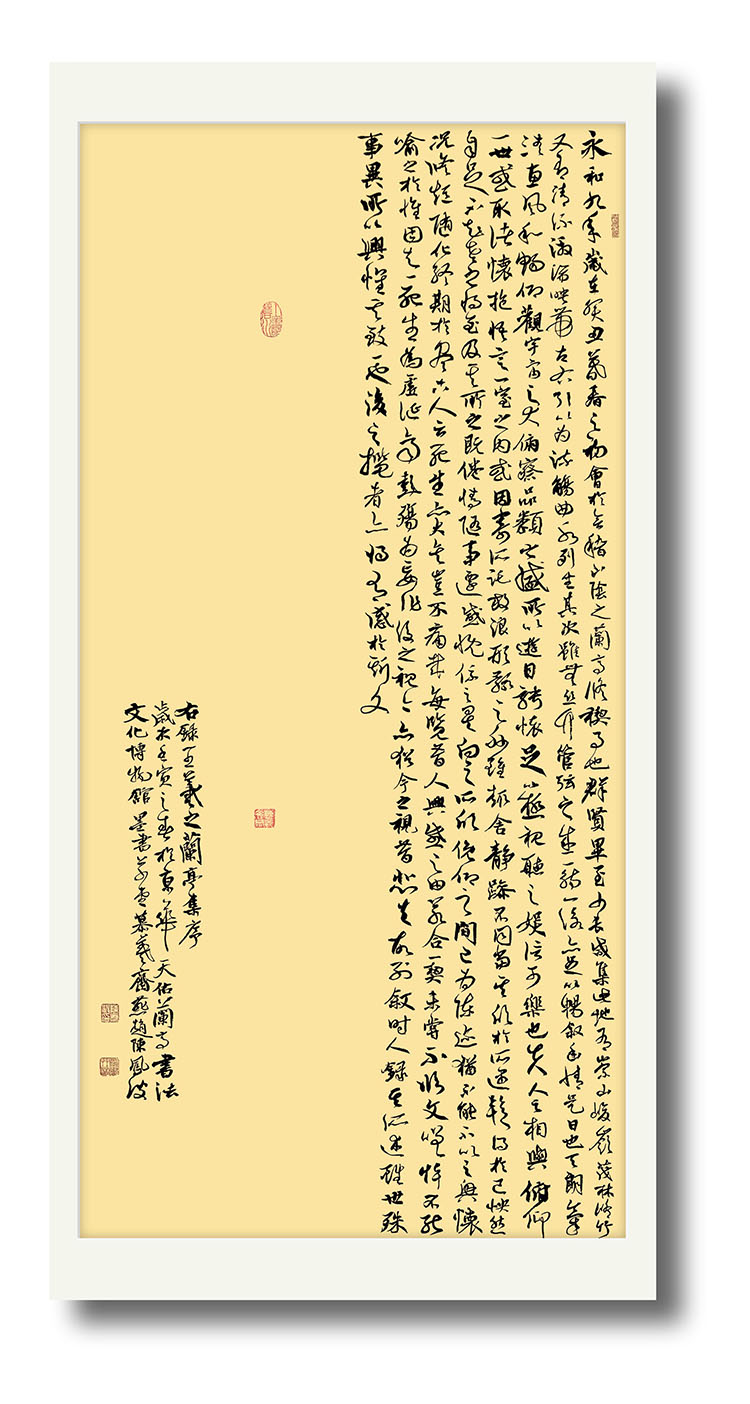 永和九年歲在癸丑暮春之初會於會稽山陰之蘭亭脩稧事也群賢畢至少長咸集此地有崇山峻嶺茂林脩竹
又有清流激湍映帶左右引以為流觴曲水列坐其次雖無絲竹管弦之盛一觴一詠亦足以暢敘幽情是日也天朗氣
清惠風和暢仰觀宇宙之大俯察品類之盛所以遊目騁懷足以極視聽之娛信可樂也夫人之相與俯仰
一世或取諸懷抱悟言一室之內或因寄所託放浪形骸之外雖趣舍靜躁不同當其欣於所遇暫得於己怏然
自足不知老之將至及其所之既倦情隨事遷感慨係之矣向之所欣俛仰之間已為陳迹猶不能不以之興懷
況脩短隨化終期於盡古人云死生亦大矣豈不痛哉每覽昔人興感之由若合一契未嘗不臨文嗟悼不能
喻之於懷固知一死生為虛誕齊彭殤為妄作後之視今亦猶今之視昔悲夫故列敘時人錄其所述雖世殊
事異所以興懷其致一也後之攬者亦將有感於斯文
右錄王羲之蘭亭集序
歲在壬寅之春於京華天佑蘭亭書法
文化博物館墨書慕羲齋燕趙陳鳳波